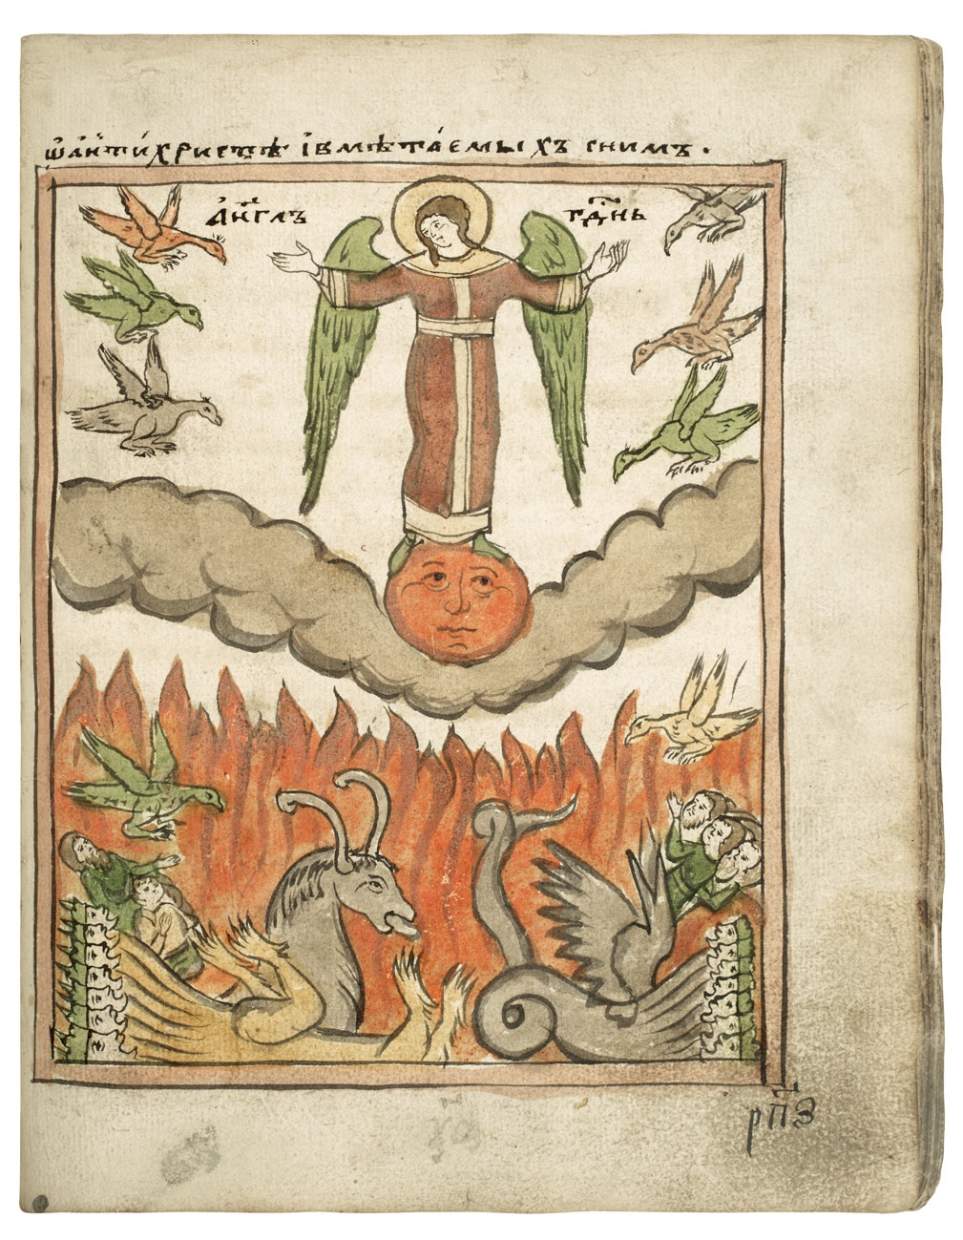 ѿа́нти́христѣ івмѣта́емыхъ снимъ.
а́нг҃лъ гд҃нь
рп҃з